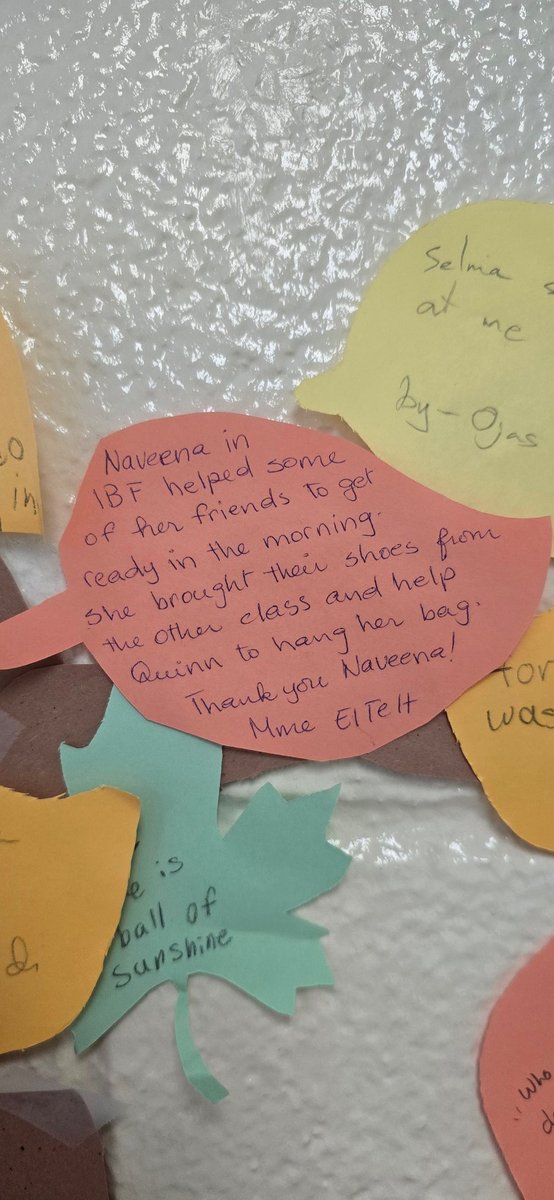 Selma
at me
by - Ojas
Naveena in
1BF helped some
of her friends to get
ready in the morning.
She brought their shoes from
the other class and help
Quinn to hang her bag.
Thank you Naveena!
Mme ElTelt
in
was
is
ball of
sunshine
"Who